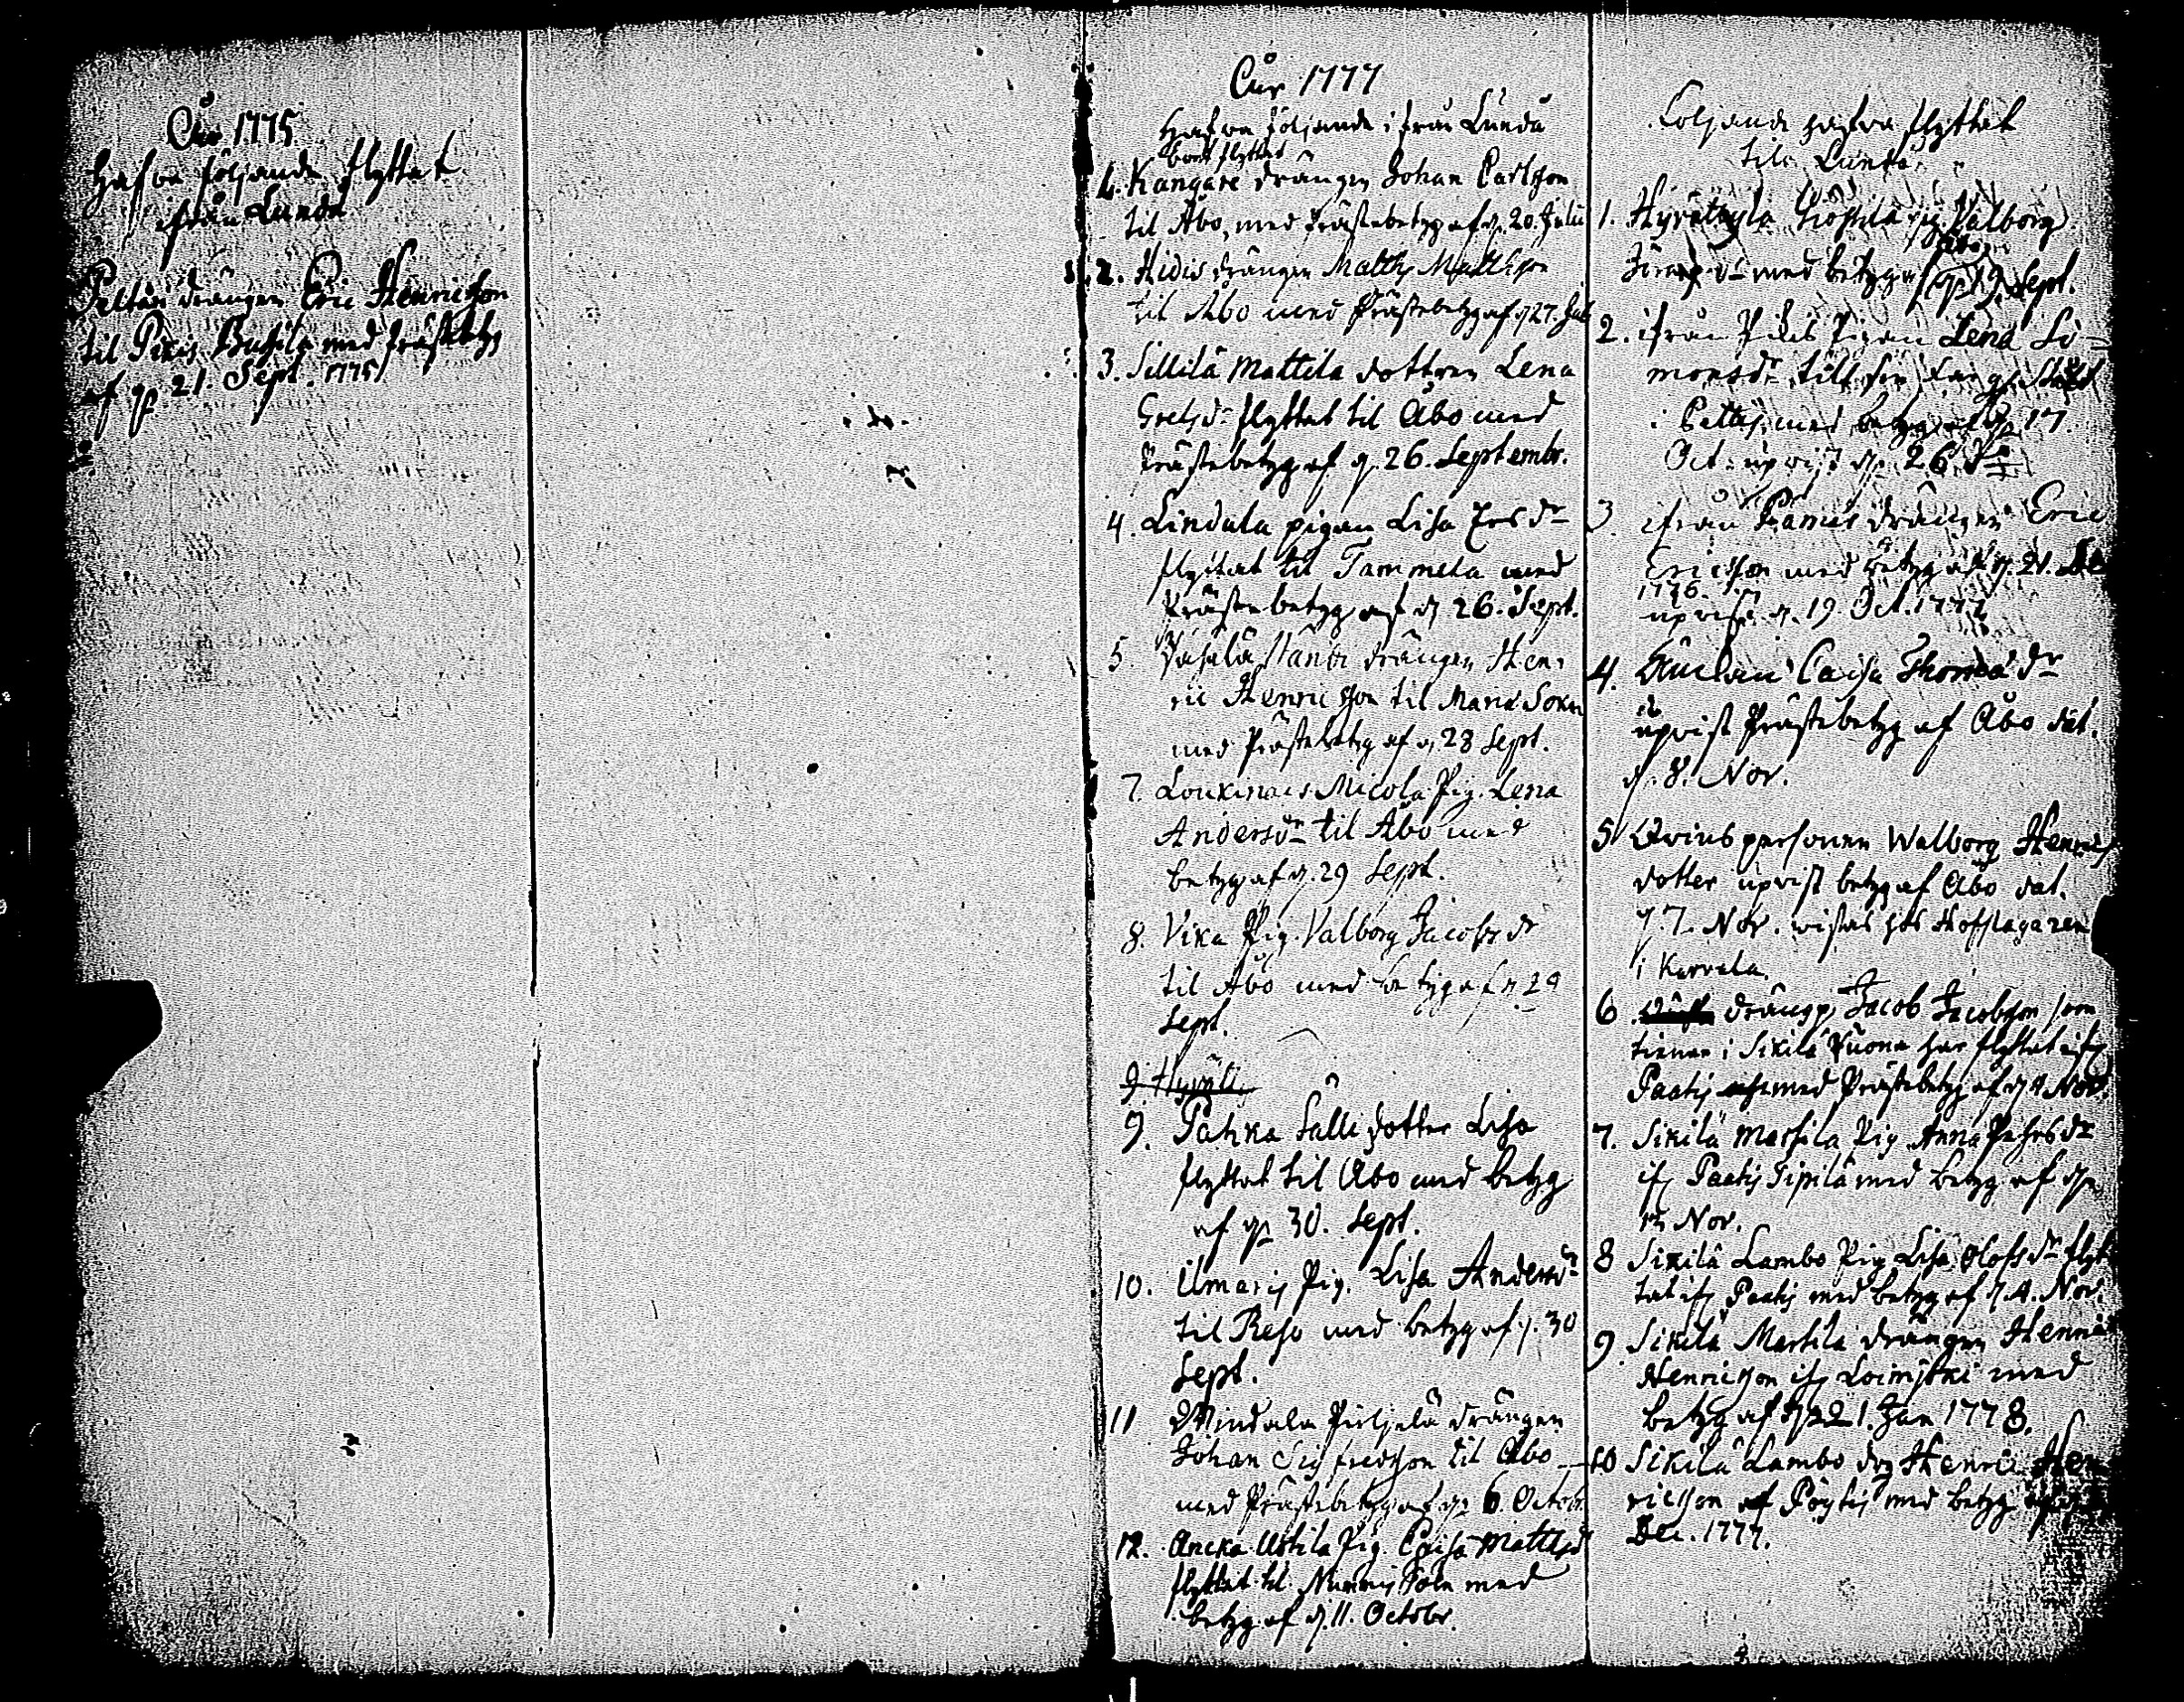 Åhr 1775
Hafva följande flyttat
ifrån Lunda
Peltari drängen Eric Henricsson
til Pikis med Prästebetyg
af d. 21. Sept. 1775
Åhr 1777
Hafva följande ifrån Lunda
bort flyttat
1. Kangare drängen Johan Carlsson
til Åbo, med Prästebetyg af d. 20. Julii
2. Hidis drängen Matths Mattsson
til Åbo med Prästebetyg af d. 27. Jul
3. Sillilä Mattila dottren Lena
Gretsdr flyttat til Åbo med
Prästebetyg af d. 26. Septembr.
4. Lindula pigan Lisa Ersdr
flyttat til Tammela med
Prästebetyg af d. 26. Sept.
5. drängen Hen-
ric Henricsson til Mariæ Sokn
med Prästebetyg af d. 28 Sept.
7. Loukinais Micola Pig. Lena
Andersdr til Åbo med
betyg af d. 29 Sept.
8. Vika Pig. Valborg Jacobsdr
til Åbo med betyg af d. 29
Sept.
9. Hyväli
9. Pahka Sälli dotter Lisa
flyttat til Åbo med betyg
af d. 30. Sept.
10. Ilmaris Pig. Lisa Andersdr
til Reso med betyg af d. 30
Sept.
11 Windala Piiljelä drängen
Johan Sigfredsson til Åbo
med Prästebetyg af d. 6. Octob.
12. Ancka Uotila Pig. Caisa Mattsdr
flyttat til Nummis Soln med
betyg af d. 11. Octobr.
Följande hafva flyttat
til Lunda
1. Pig Valborg
med betyg af Åbo d. 19 Sept.
2. ifrån Pikis Pigan Lena Si-
monsdr till sin
i Pettis med betyg af d. 17.
Oct. upvist d. 26 dr
3 ifrån drängen Eric
Ericsson med betyg af d. 21. De
1776.
upvist d. 19 Oct. 1777
4. Änckan Caisa Thomædr
upvist Prästebetyg af Åbo dat.
d. 8. Nov.
5 Qvinspersonen Walborg Henrics
dotter upvist betyg af Åbo dat.
d. 7. Nov. wistas hos Hofslagaren
i Karvela.
6. drängen Jacob Jacobsson som
tienar i Sikilä Puona har flyttat ifr.
Paatis med Prästebetyg af d. 4 Nov.
7. Sikilä Marsila Pig. Anna Pehrsdr
ifr. Paatis Sipilä med betyg af d.
Nov.
8 Sikilä Lambo Pig Lisa Olofsdr flyt
tat ifr. Paatis med betyg af d. 4. Nov.
9. Sikilä Marsila drängen Henric
Henricsson ifr. Loimjoki med
betyg af d. 21. Jan 1778.
10 Sikilä Lambo drg Henric Hen
ricsson af Pöytis med betyg af
Dec. 1777.